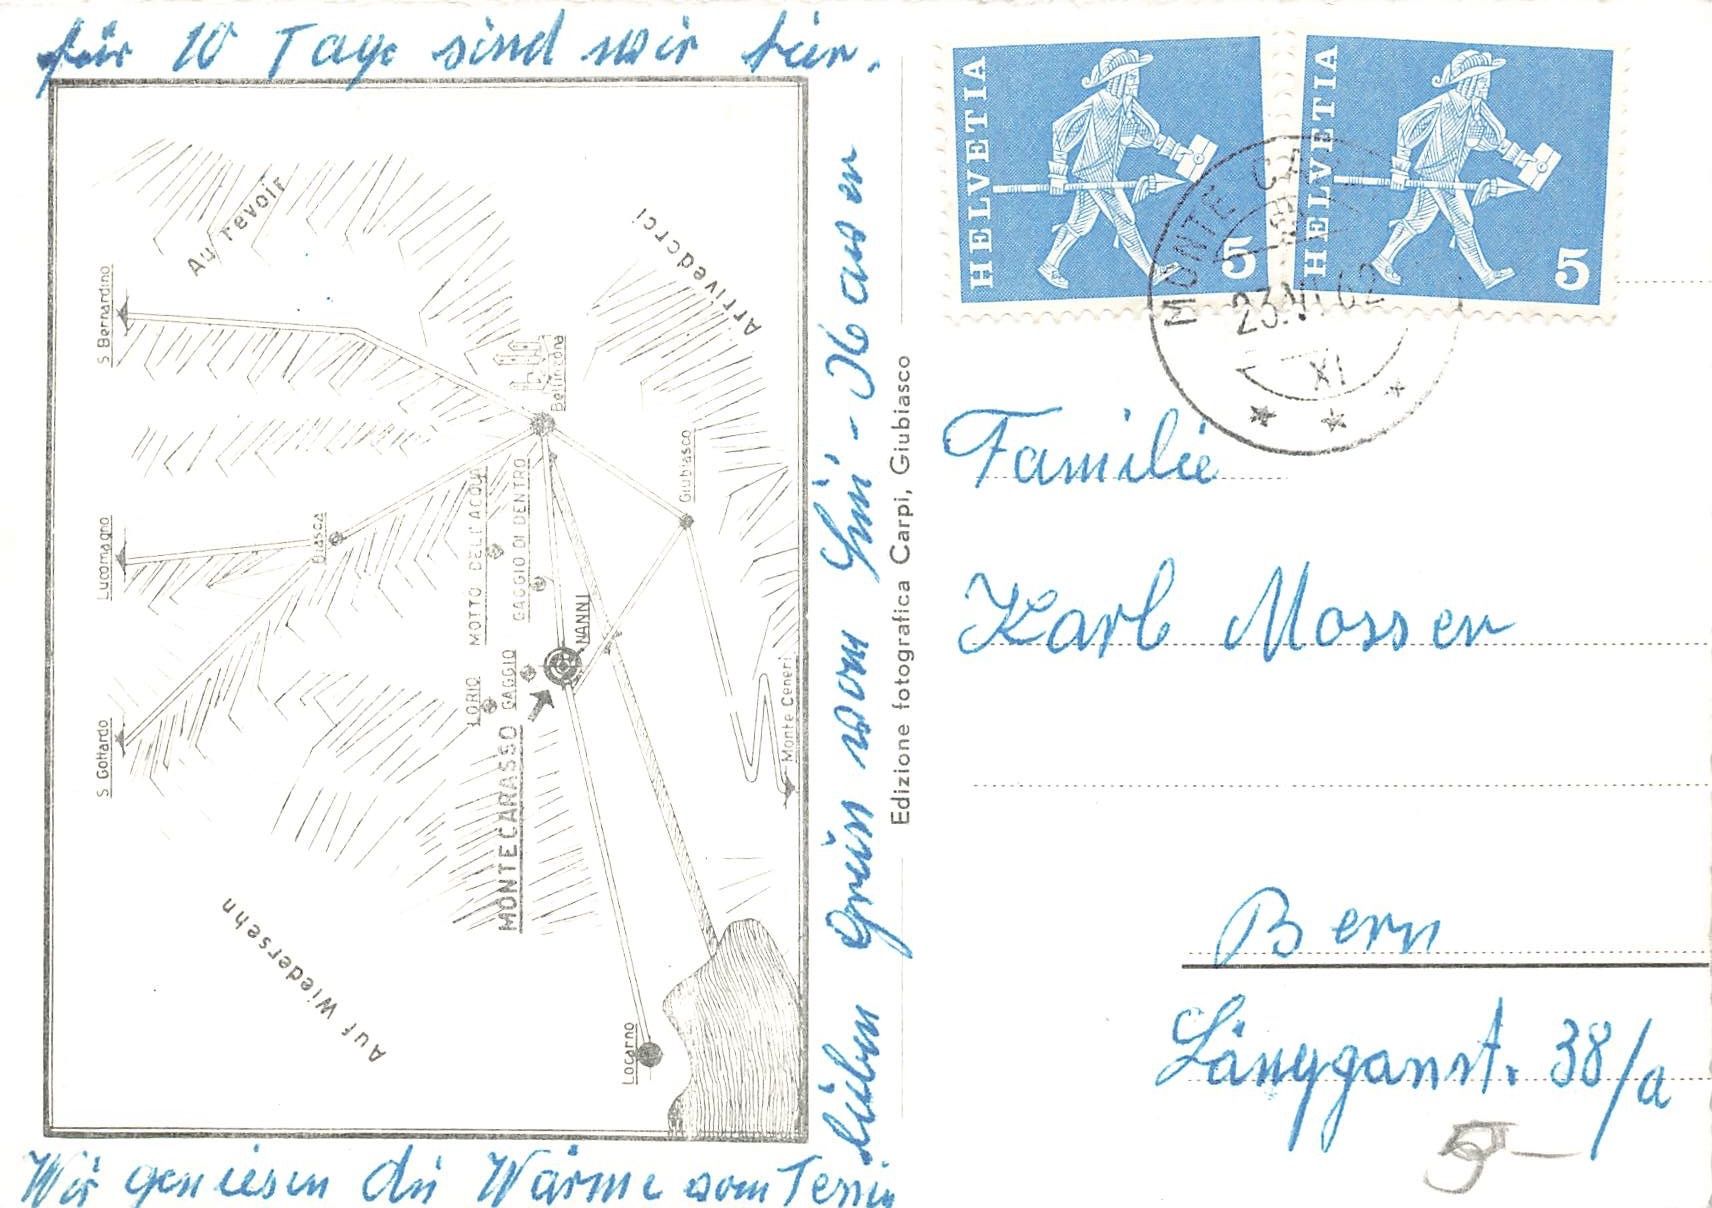 für 10 Tage sind wir hier.
Au revoir
Arrivederci
S Bernardino
Bellinzona
Giubiasco
Lucomagno
Biasca
MOTTO DELL'ACQUA
GAGGIO DI DENTRO
NANNI
LORIO
GAGGIO
MONTECARASSO
S. Gottardo
Monte Ceneri
Auf Wiedersehn
Locarno
Wir geniesen die Wärme vom Tessin
lieben Gruss vom
Edizione fotografica Carpi, Giubiasco
HELVETIA
5
HELVETIA
5
MONTE
23.VI.62
XI
Familie
Karl Mosser
Bern
Länggasst. 38/a
5—